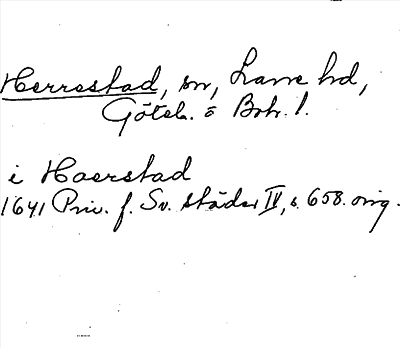 Herrestad, sn, Lane hd,
Göteb. o Boh. l.
i Haerstad
1641 Priv. f. Sv. städer IV, s. 658. orig.